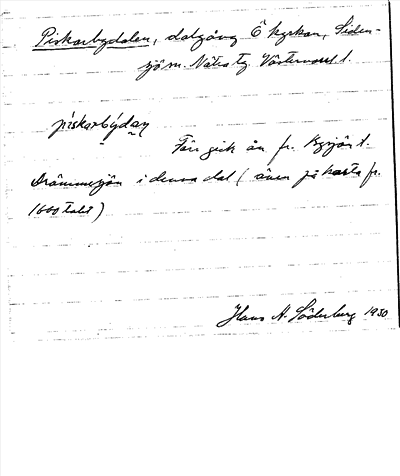 Piskarbydalen, dalgång Ö kyrkan, Siden-
sjö sn. Nätra tg. Västernorrl l.
piskarbýdaṇ
Förr gick ån fr. Kysjön t.
Drömmesjön i denna dal (även på karta fr.
1600 talet)
Hans A. Söderberg 1930